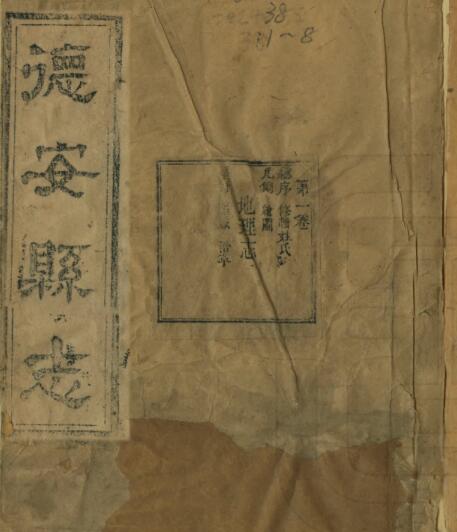 德安縣志
第一卷
總序 修撰姓氏
凡例 繪圖
地理志
38
3 1~8